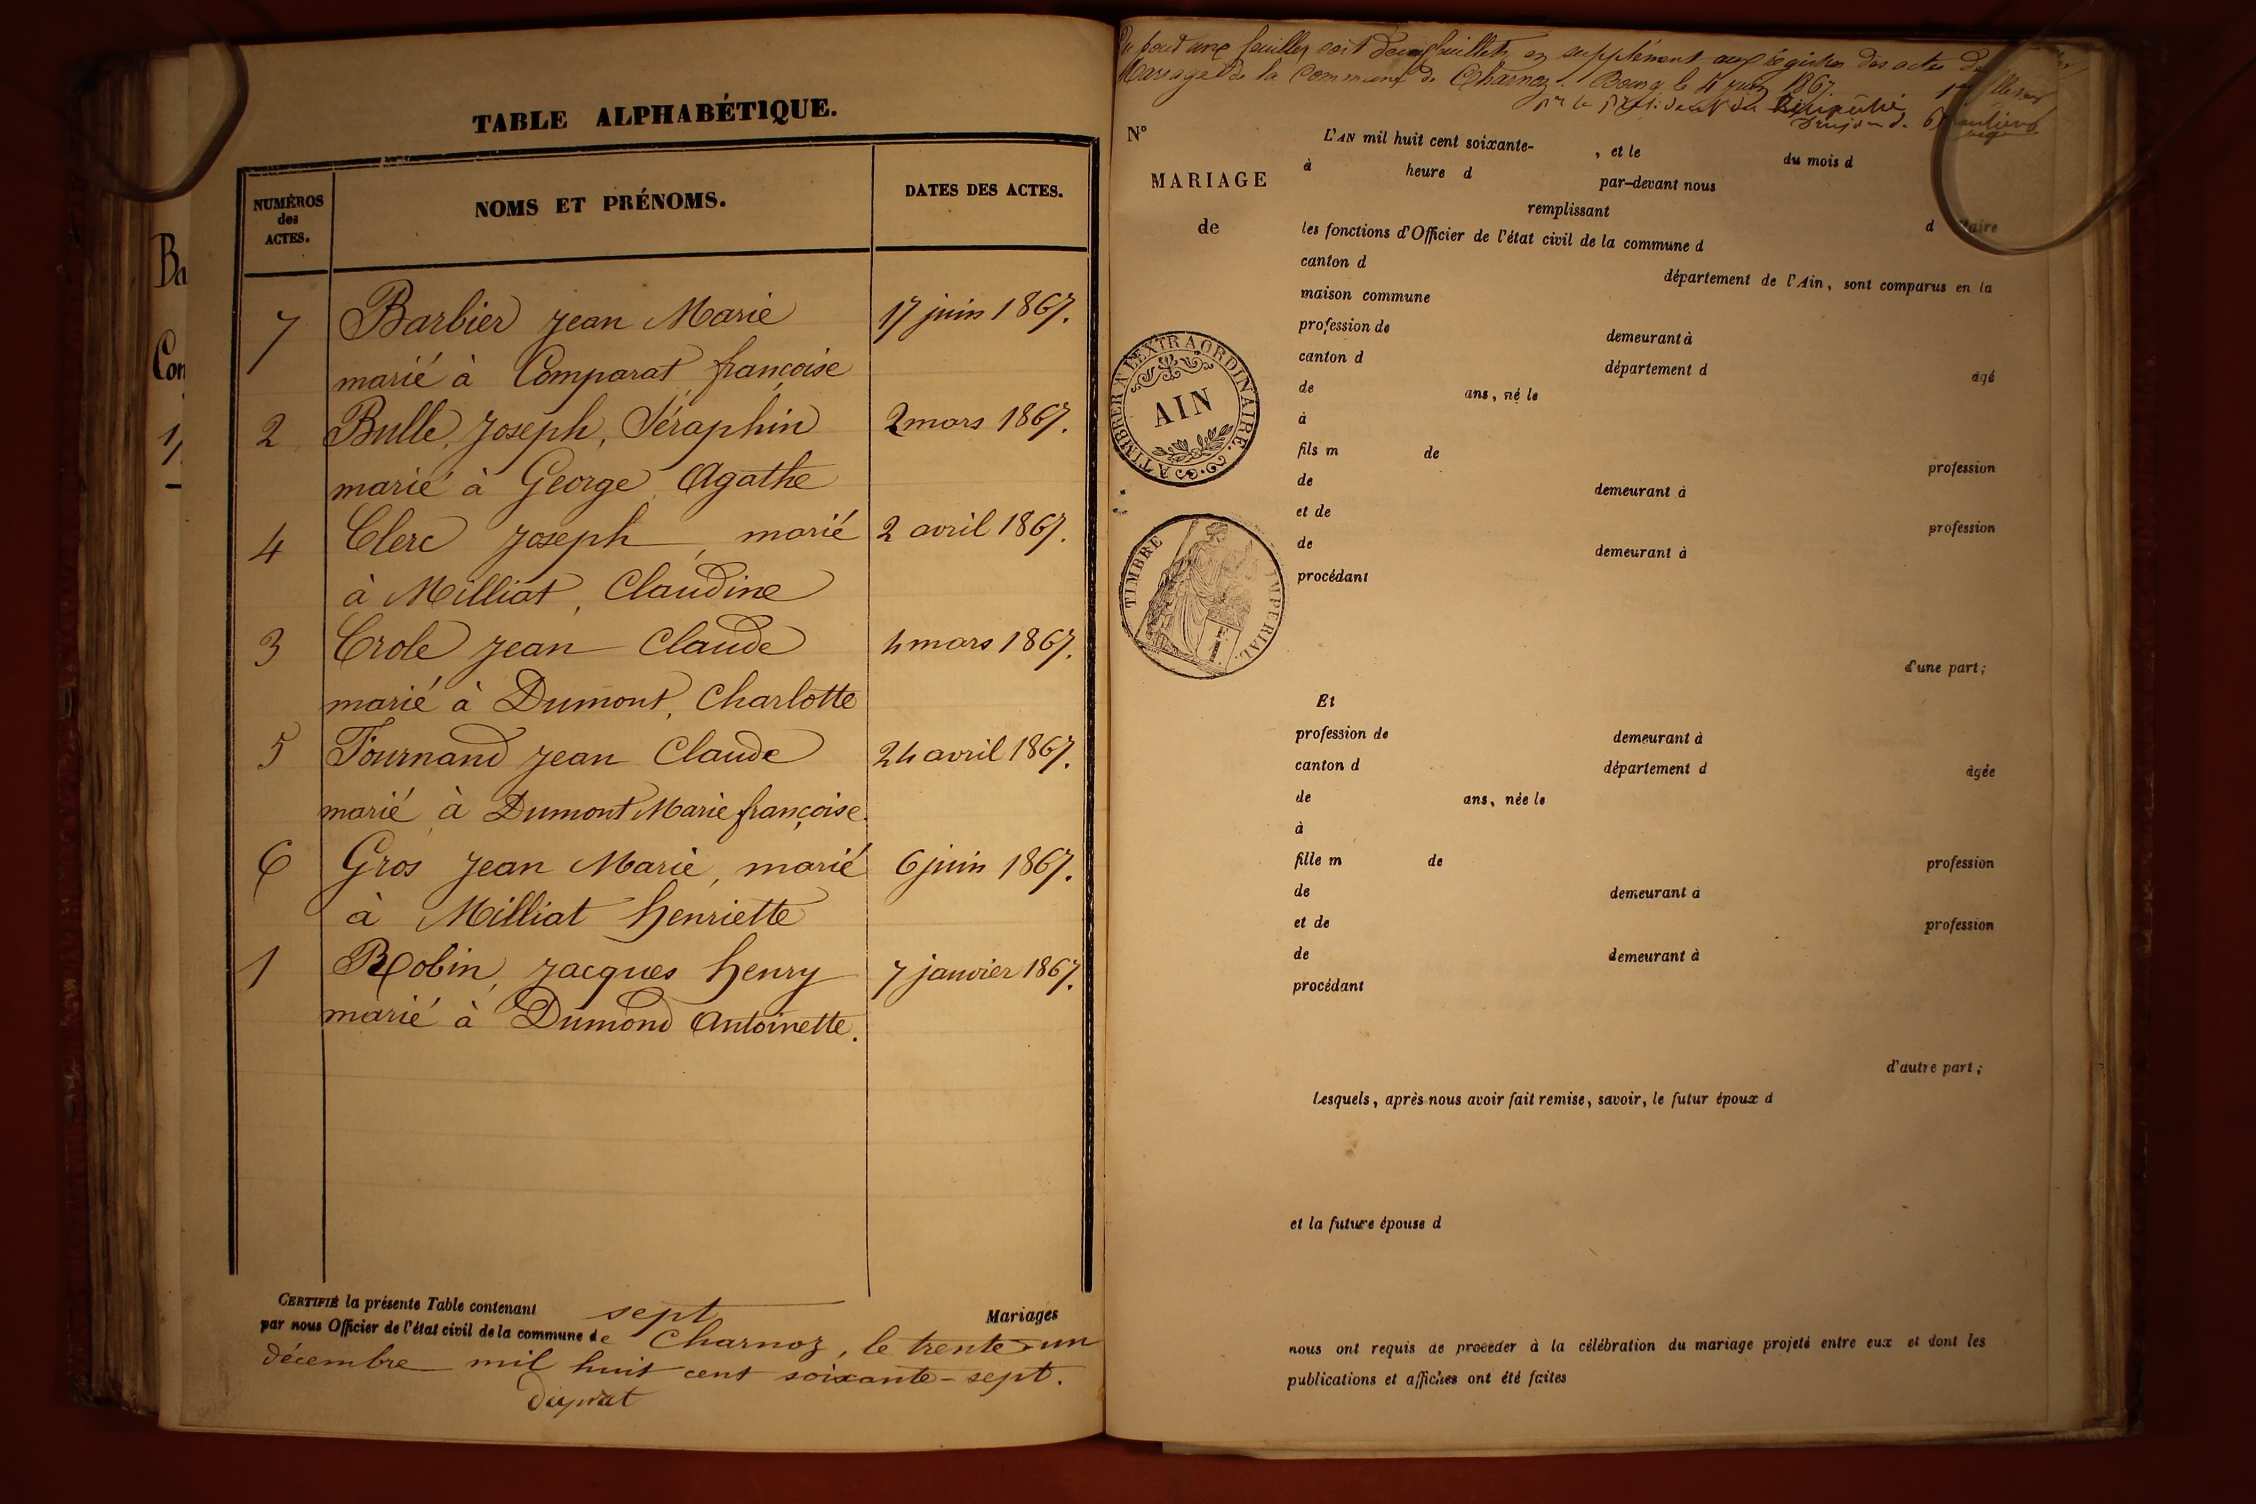 TABLE ALPHABÉTIQUE.
NUMÉROS des ACTES.
NOMS ET PRÉNOMS.
DATES DES ACTES.
7 Barbier Jean Marie 17 juin 1867.
marié à Comparat françoise
2 Bulle, Joseph, Séraphin 2 mars 1867.
marié à George Agathe
4 Clerc Joseph, marié 2 avril 1867.
à Milliat, Claudine
3 Crole Jean Claude 4 mars 1867.
marié à Dumont, Charlotte
5 Fournand Jean Claude 24 avril 1867.
marié à Dumont Marie françoise.
6 Gros Jean Marie, marié 6 juin 1867.
à Milliat henriette
1 Robin, Jacques henry 7 janvier 1867.
marié à Dumond Antoinette.
CERTIFIÉ la présente Table contenant sept Mariages
par nous Officier de l'état civil de la commune de Charnoz, le trente-un
décembre mil huit cent soixante-sept.
Ba
Com
1
feuilles, soit deux feuillets en supplément aux registres des actes de
Mariage de la Commune de Charnoz. Bourg le 4 1867.
pr le président
N°
MARIAGE
de
L'AN mil huit cent soixante- , et le du mois d
à heure d par-devant nous
remplissant
les fonctions d'Officier de l'état civil de la commune d d
canton d département de l'Ain, sont comparus en la
maison commune
profession de demeurant à
canton d département d agé
de ans, né le
à
fils m de profession
de demeurant à
et de profession
de demeurant à
procédant
d'une part;
A TIMBRER À L'EXTRAORDINAIRE.
AIN
TIMBRE IMPERIAL
Et
profession de demeurant à
canton d département d agée
de ans, née le
à
fille m de profession
de demeurant à
et de profession
de demeurant à
procédant
d'autre part;
Lesquels, après nous avoir fait remise, savoir, le futur époux d
et la future épouse d
nous ont requis de procéder à la célébration du mariage projeté entre eux et dont les
publications et affiches ont été faites